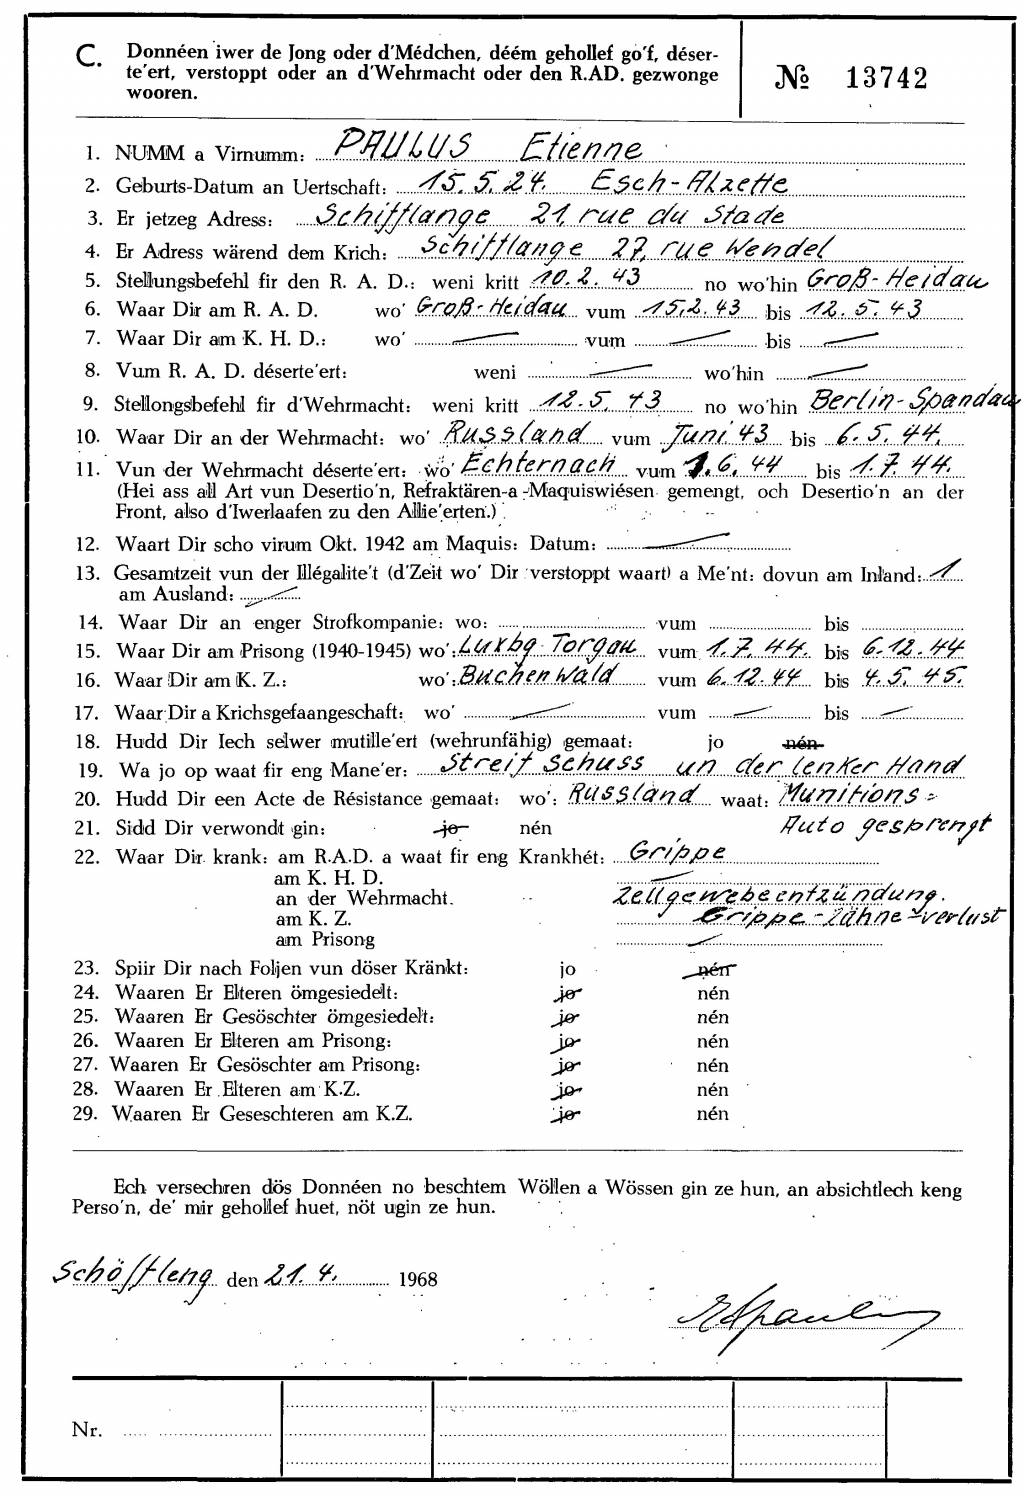 C. Donnéen iwer de Jong oder d'Médchen, déém gehollef go'f, déser-
te'ert, verstoppt oder an d'Wehrmacht oder den R.AD. gezwonge
wooren.
№ 13742
1. NUMM a Virnumm: PAULUS Etienne
2. Geburts-Datum an Uertschaft: 15. 5. 24. Esch-Alzette
3. Er jetzeg Adress: Schifflange 21, rue du Stade
4. Er Adress wärend dem Krich: Schifflange 27, rue Wendel
5. Stellungsbefehl fir den R. A. D.: weni kritt 10. 2. 43 no wo'hin Groß-Heidau
6. Waar Dir am R. A. D. wo' Groß-Heidau vum 15.2.43 bis 12. 5. 43
7. Waar Dir am K. H. D.: wo' vum bis
8. Vum R. A. D. déserte'ert: weni wo'hin
9. Stellongsbefehl fir d'Wehrmacht: weni kritt 12.5. 43 no wo'hin Berlin-Spandau
10. Waar Dir an der Wehrmacht: wo' Russland vum Juni 43 bis 6. 5. 44.
11. Vun der Wehrmacht déserte'ert: wo' Echternach vum 1.6.44 bis 1.7.44.
(Hei ass all Art vun Desertio'n, Refraktären-a-Maquiswiésen gemengt, och Desertio'n an der
Front, also d'Iwerlaafen zu den Allie'erten.)
12. Waart Dir scho virum Okt. 1942 am Maquis: Datum:
13. Gesamtzeit vun der Illégalite't (d'Zeit wo' Dir verstoppt waart) a Me'nt: dovun am Inland: 1
am Ausland:
14. Waar Dir an enger Strofkompanie: wo: vum bis
15. Waar Dir am Prisong (1940-1945) wo': Luxbg Torgau vum 1.7.44. bis 6.12.44
16. Waar Dir am K. Z.: wo': Buchenwald vum 6.12.44 bis 4.5.45.
17. Waar Dir a Krichsgefaangeschaft: wo' vum bis
18. Hudd Dir Iech selwer mutille'ert (wehrunfähig) gemaat: jo nén
19. Wa jo op waat fir eng Mane'er: Streif schuss un der lenker Hand
20. Hudd Dir een Acte de Résistance gemaat: wo': Russland waat: Munitions=
21. Sidd Dir verwondt gin: jo nén Auto gesprengt
22. Waar Dir krank: am R.A.D. a waat fir eng Krankhét: Grippe
am K. H. D.
an der Wehrmacht. Zellgewebeentzündung.
am K. Z. Grippe-Zähne-verlust
am Prisong
23. Spiir Dir nach Foljen vun döser Kränkt: jo nén
24. Waaren Er Elteren ömgesiedelt: jo nén
25. Waaren Er Gesöschter ömgesiedelt: jo nén
26. Waaren Er Elteren am Prisong: jo nén
27. Waaren Er Gesöschter am Prisong: jo nén
28. Waaren Er Elteren am K.Z. jo nén
29. Waaren Er Geseschteren am K.Z. jo nén
Ech versechren dös Donnéen no beschtem Wöllen a Wössen gin ze hun, an absichtlech keng
Perso'n, de' mir gehollef huet, nöt ugin ze hun.
Schöffleng den 21. 4. 1968
Nr.